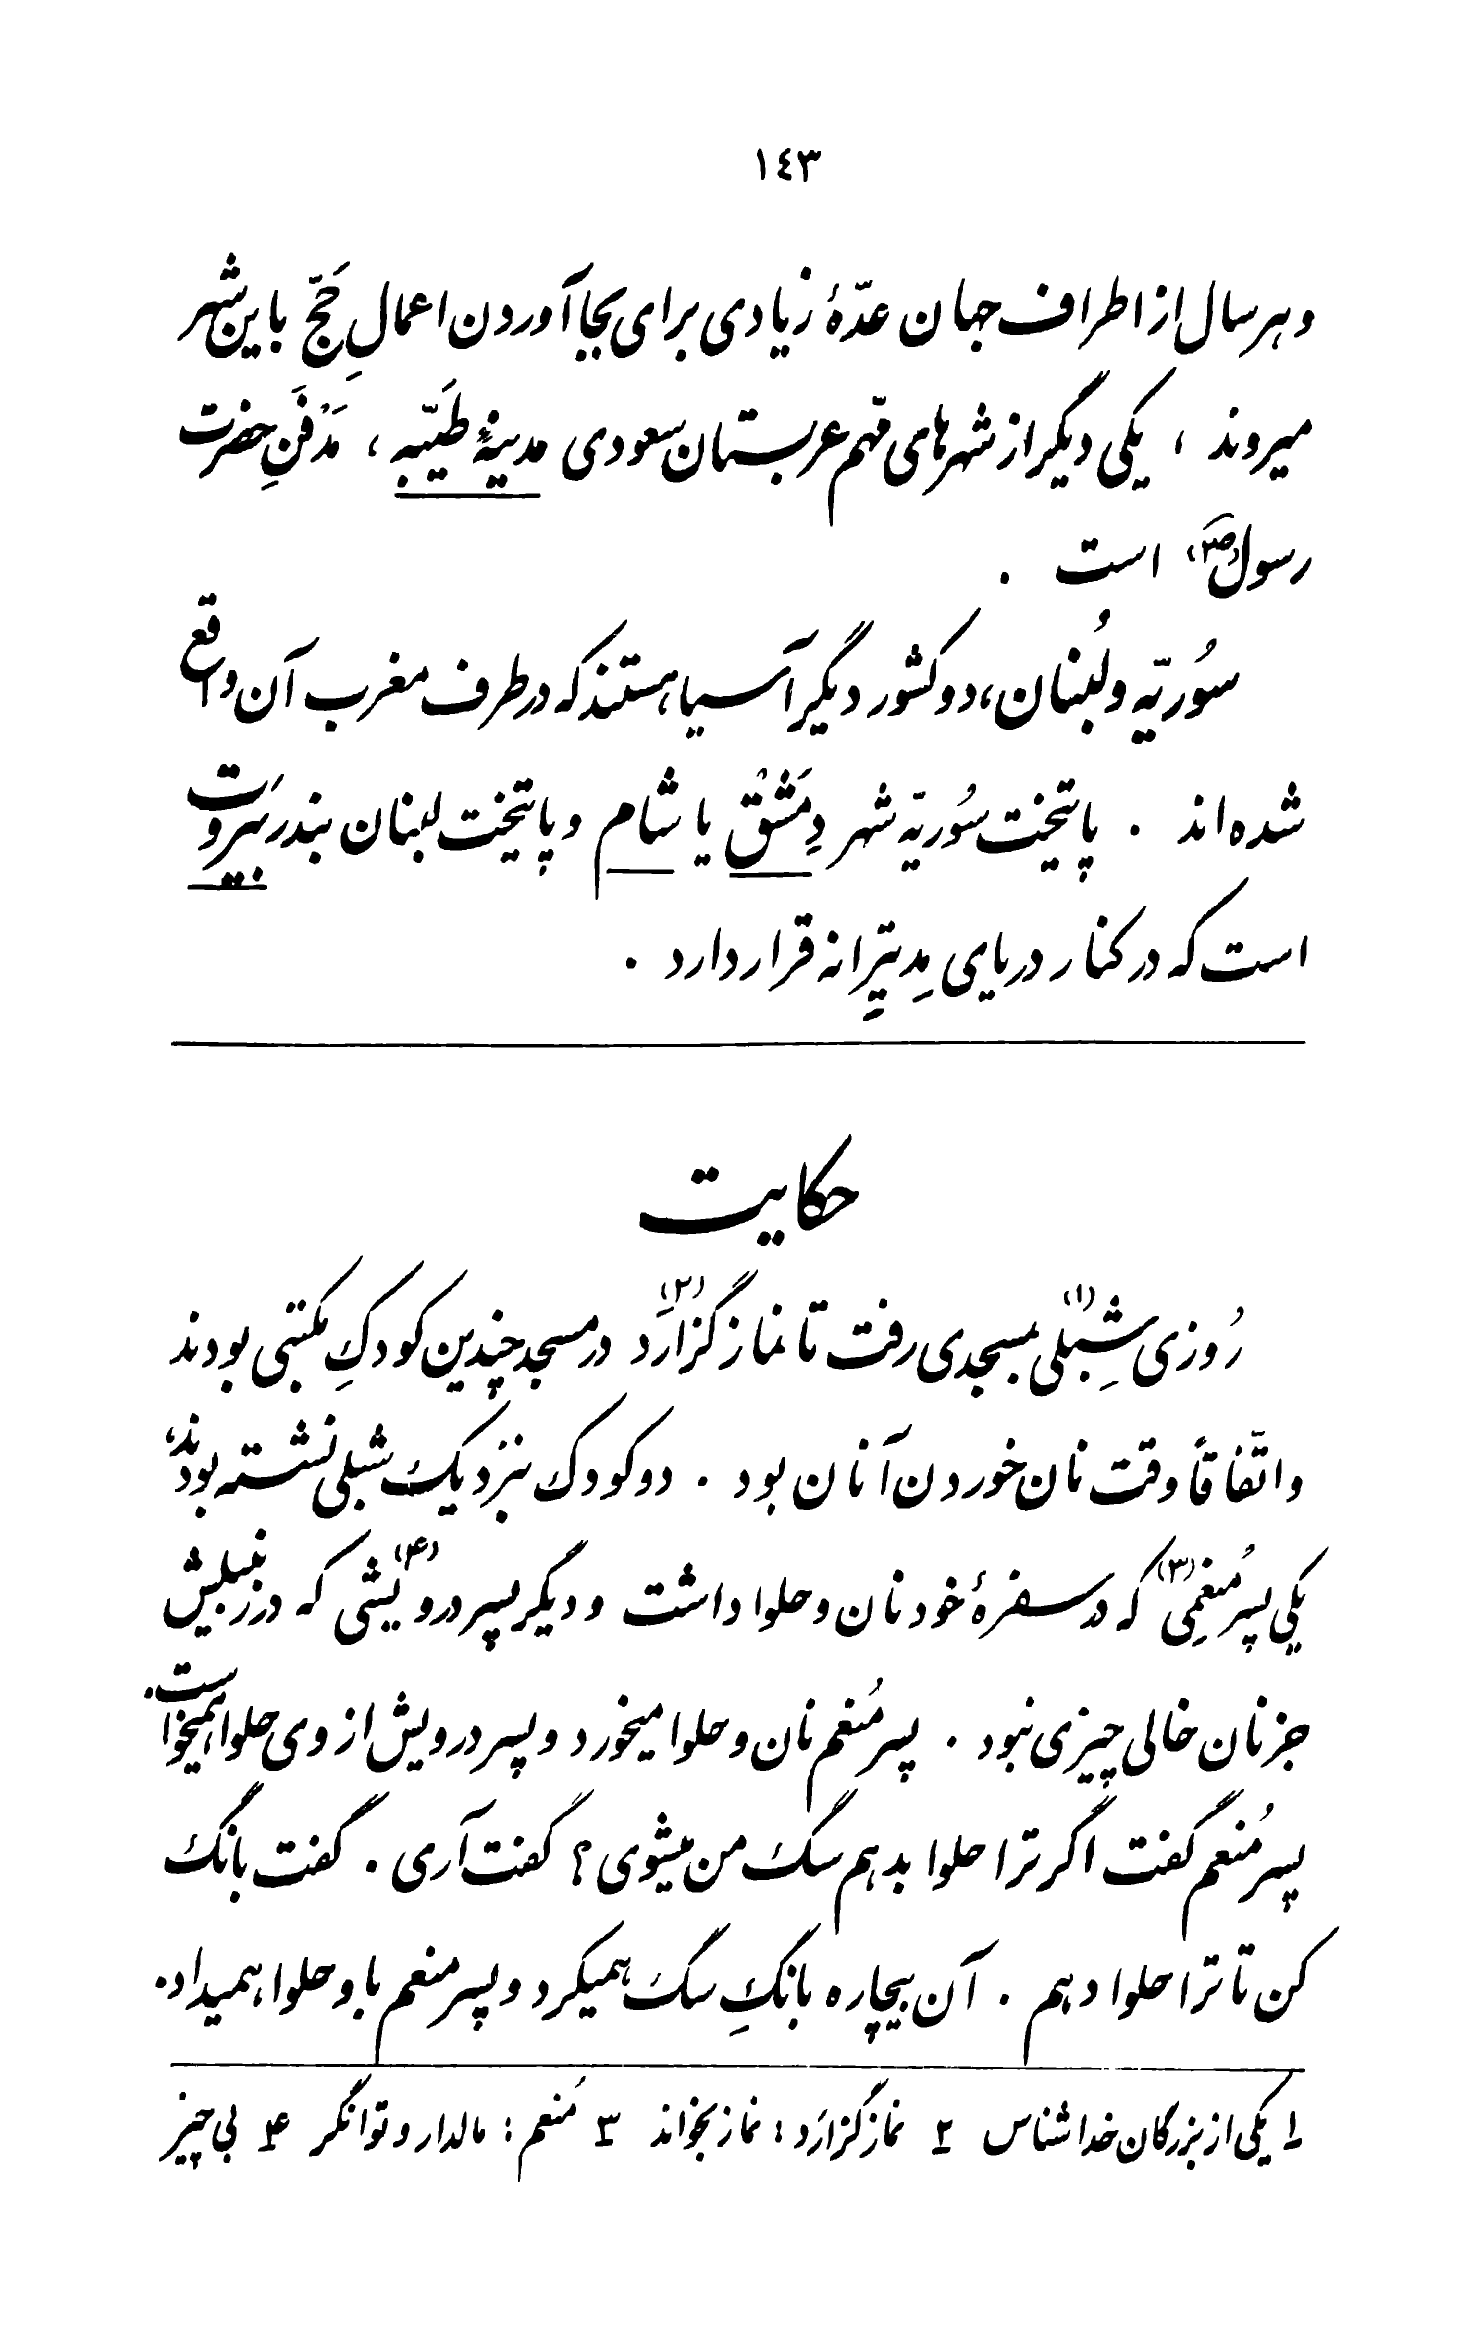 ١٤٣
و هر سال از اطراف جهان عدّهٔ زیادی برای بجا آوردن اعمالِ حَجّ باین شهر
میروند ، یکی دیگر از شهرهای مهّم عربستان سعودی مدینهٔ طَیّبه ، مَدْفَنِ حضرت
رسول (ص) است .
سُوریّه و لُبنان ، دو کشور دیگر آسیا هستند که در طرف مغرب آن واقع
شده‌اند . پایتخت سُوریّه شهر دِمَشْق یا شام و پایتخت لبنان بندر بَیروت
است که در کنار دریای مِدیتِرانه قرار دارد .
حکایت
رُوزی شِبْلی (۱) بمسجدی رفت تا نماز گزارَد (۲) در مسجد چندین کودکِ مکتبی بودند
و اتّفاقاً وقت نان خوردن آنان بود . دو کودک نزدیک شبلی نشسته بودند ،
یکی پسر مُنعِمی (۳) که در سفرهٔ خود نان و حلوا داشت و دیگر پسر درویشی (۴) که در زنبیلش
جز نان خالی چیزی نبود . پسر مُنعم نان و حلوا میخورد و پسر درویش از وی حلوا همیخواست .
پسر مُنعم گفت اگر ترا حلوا بدهم سگ من میشوی ؟ گفت آری . گفت بانگ
کن تا ترا حلوا دهم . آن بیچاره بانگِ سگ همیکرد و پسر منعم باو حلوا همیداد .
۱ یکی از بزرگان خداشناس ۲ نماز گزارَد : نماز بخواند ۳ مُنعم : مالدار و توانگر ۴ بی چیز